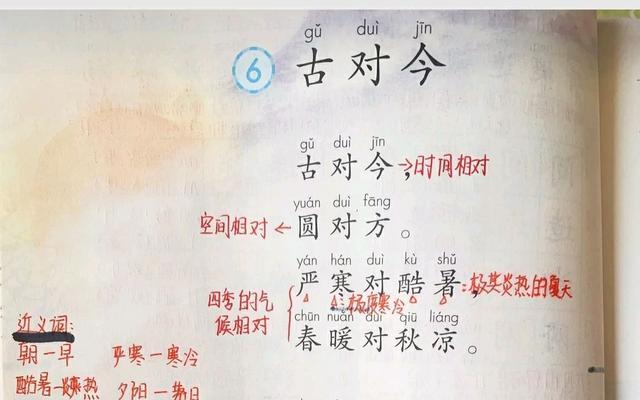 gǔ duì jīn
6 古对今
gǔ duì jīn
古对今，→时间相对
yuán duì fāng
空间相对←圆对方。
yán hán duì kù shǔ
严寒对酷暑，:极其炎热的夏天
四季的气候相对
极度寒冷
chūn nuǎn duì qiū liáng
春暖对秋凉。
近义词:
朝—早 严寒—寒冷
酷暑—炎热 夕阳—